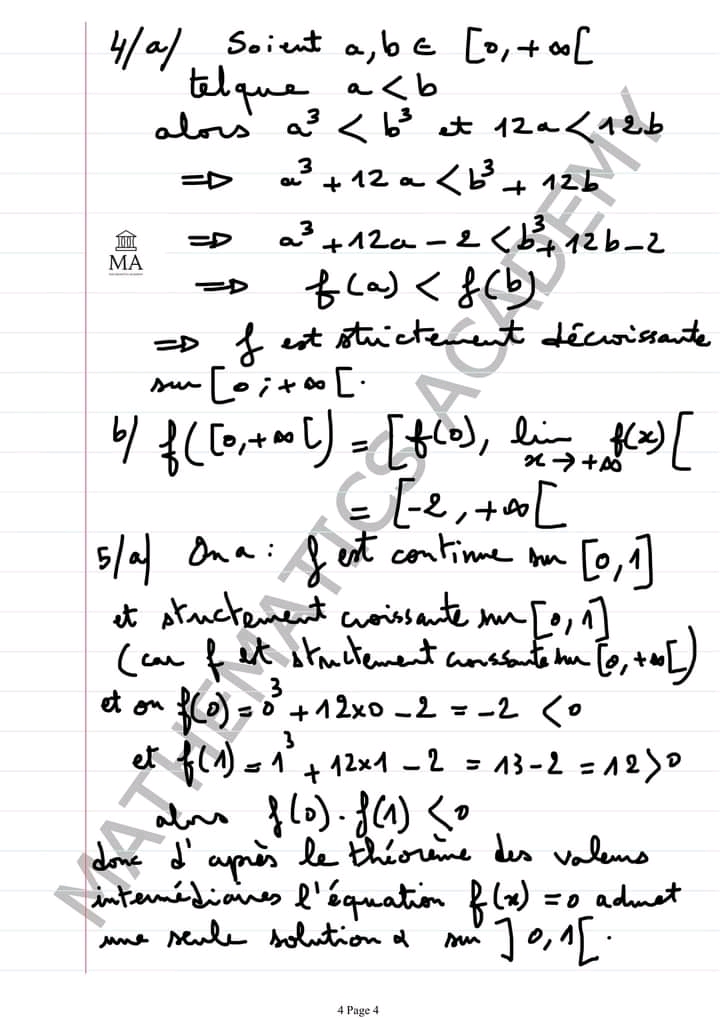 4/a/ Soient a, b ∈ [0, +∞[
telque a < b
alors a³ < b³ et 12a < 12b
⇒ a³ + 12a < b³ + 12b
⇒ a³ + 12a - 2 < b³ + 12b - 2
MA
⇒ f(a) < f(b)
⇒ f est strictement décroissante
sur [0 ; +∞[.
b/ f([0, +∞[) = [f(0), lim x→+∞ f(x)[
= [-2, +∞[
5/a/ On a : f est continue sur [0, 1]
et strictement croissante sur [0, 1]
(car f est strictement croissante sur [0, +∞[)
et on f(0) = 0³ + 12×0 - 2 = -2 < 0
et f(1) = 1³ + 12×1 - 2 = 13 - 2 = 12 > 0
alors f(0) · f(1) < 0
donc d'après le théorème des valeurs
intermédiaires l'équation f(x) = 0 admet
une seule solution α sur ]0, 1[.
MATHEMATICS ACADEMY
4 Page 4